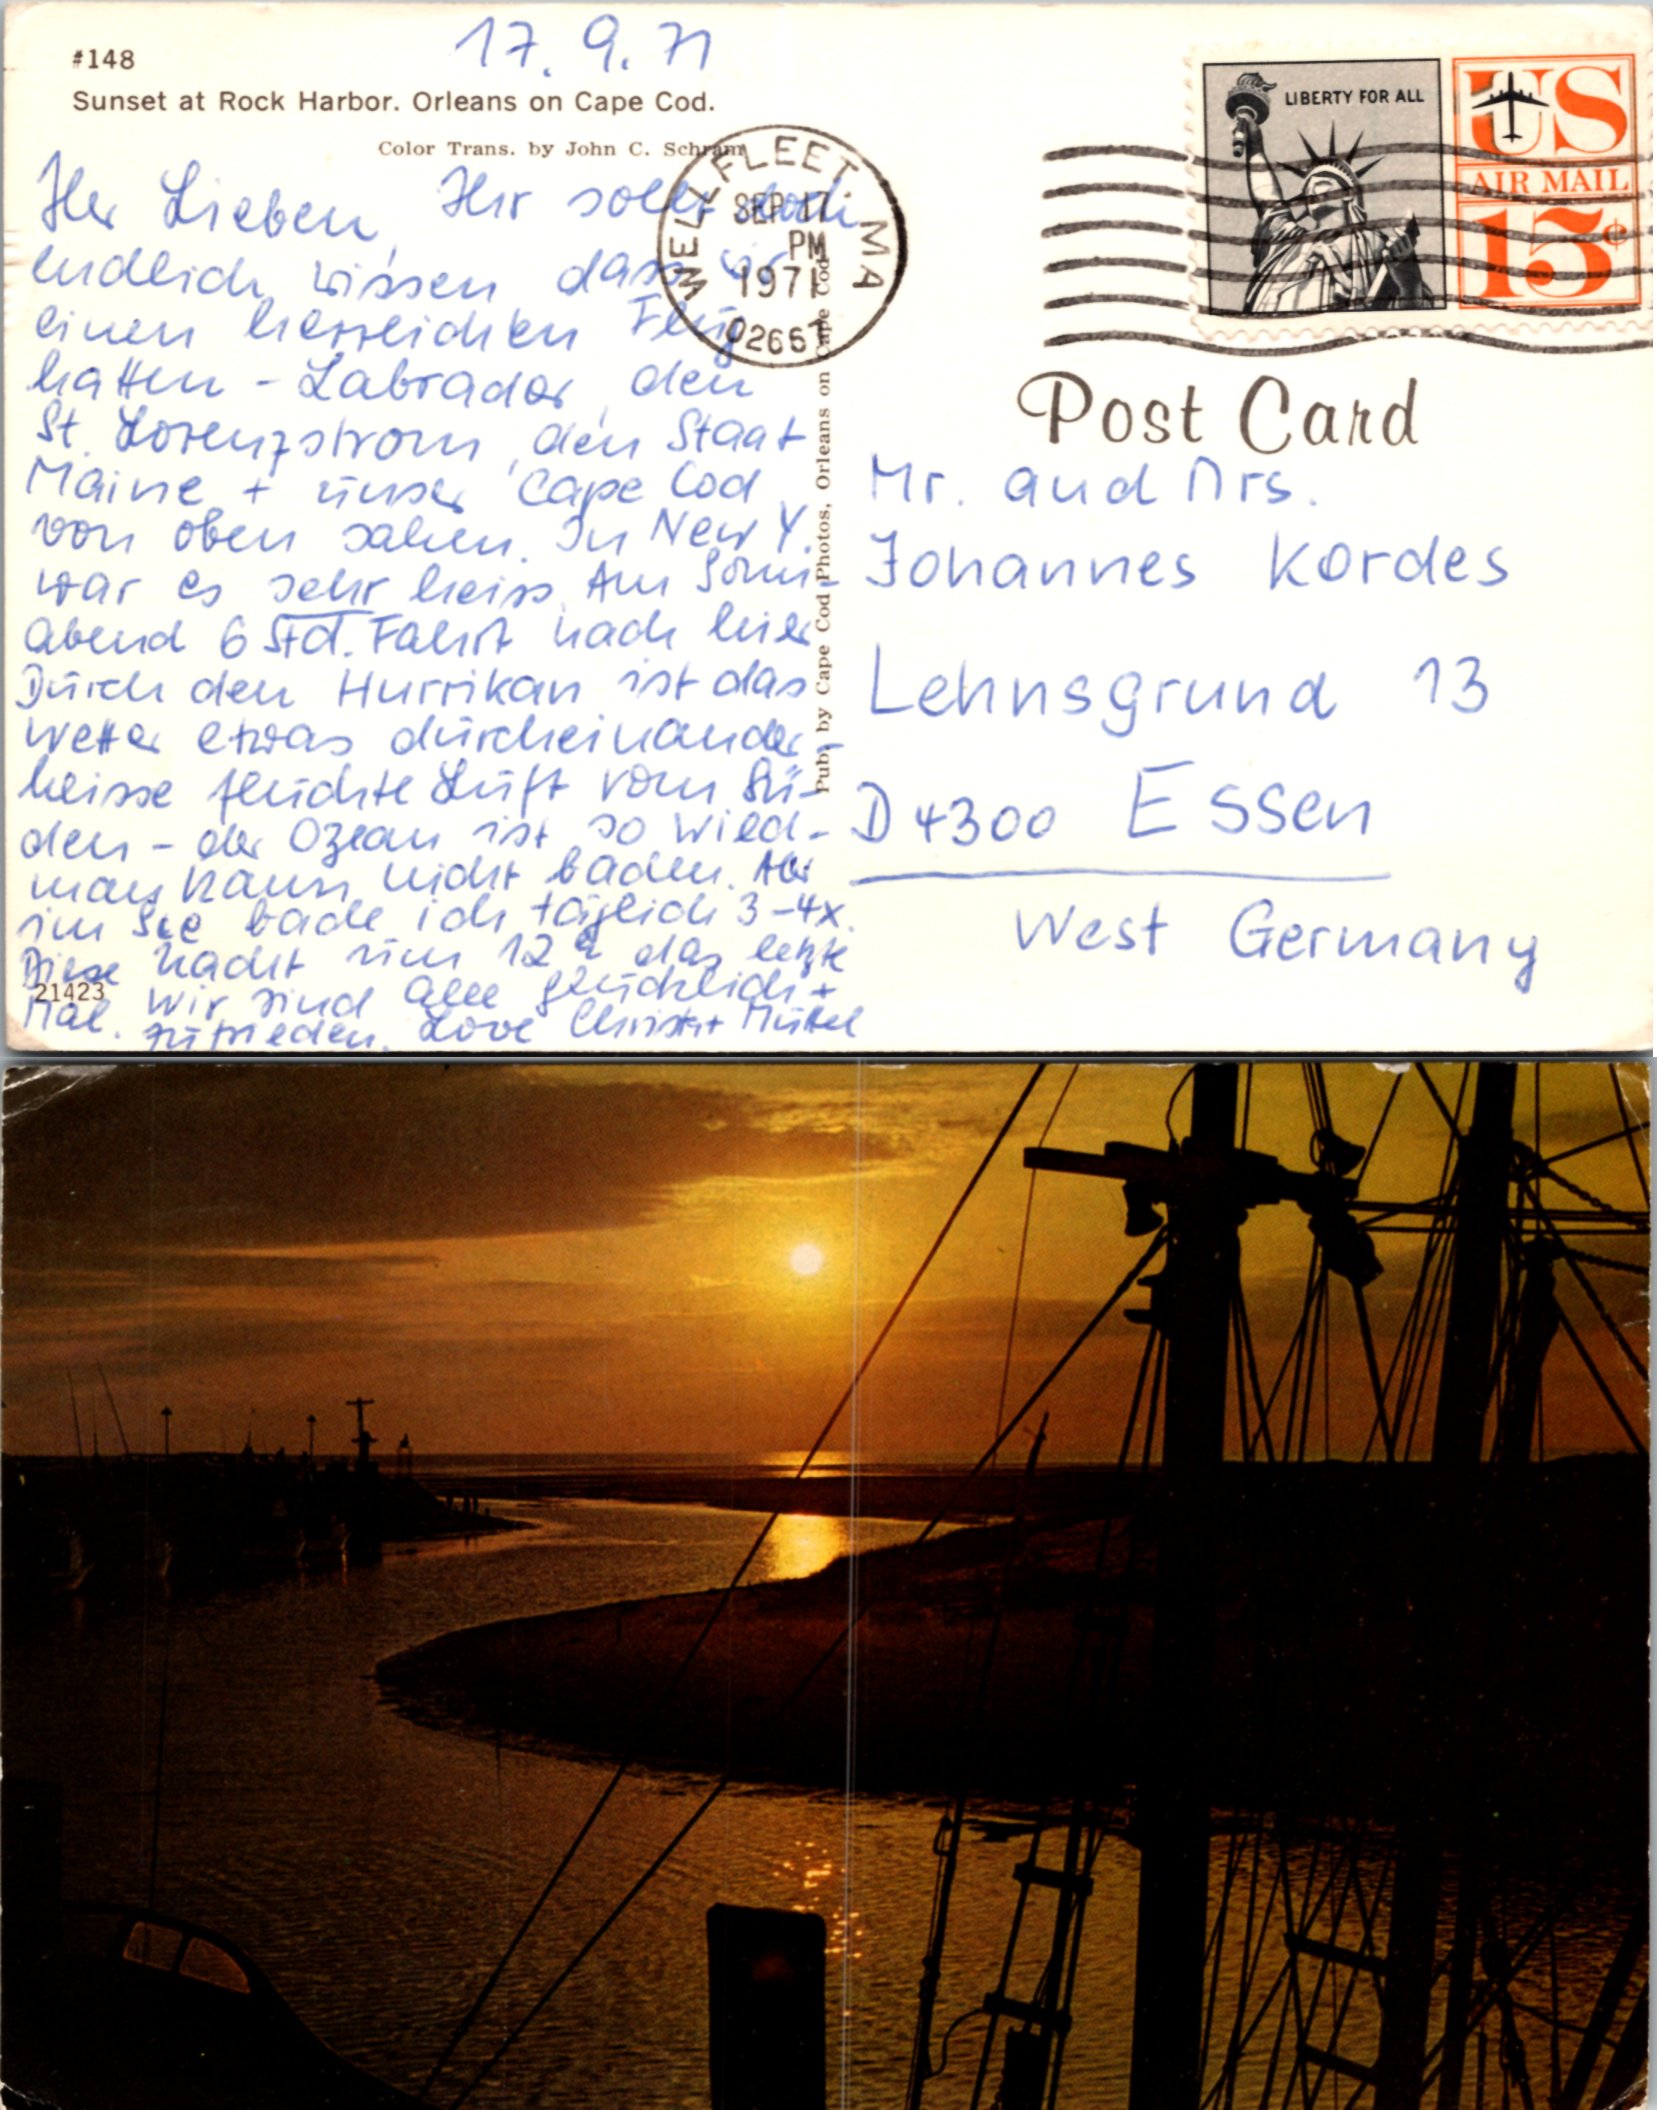 17. 9. 71
#148
Sunset at Rock Harbor. Orleans on Cape Cod.
Color Trans. by John C. Schram
WELLFLEET. MA
SEP 17
PM
1971
02667
LIBERTY FOR ALL
US
AIR MAIL
15¢
Post Card
Ihr Lieben, Ihr sollt doch
endlich wissen dass wir
einen herrlichen Flug
hatten - Labrador, den
St. Lorenzstrom, den Staat
Maine + unser Cape Cod
von oben sahen. In New Y.
war es sehr heiss. Am Sonn-
abend 6 Std. Fahrt nach hier
Durch den Hurrikan ist das
Wetter etwas durcheinander-
heisse feuchte Luft vom Sü-
den - der Ozean ist so wild -
man kann nicht baden. Aber
im See bade ich täglich 3-4x.
Diese Nacht um 12 das letzte
Mal. Wir sind alle glücklich +
zufrieden. Love Christa + Muttel
21423
Pub. by Cape Cod Photos, Orleans on Cape Cod
Mr. and Mrs.
Johannes Kordes
Lehnsgrund 13
D 4300 Essen
West Germany